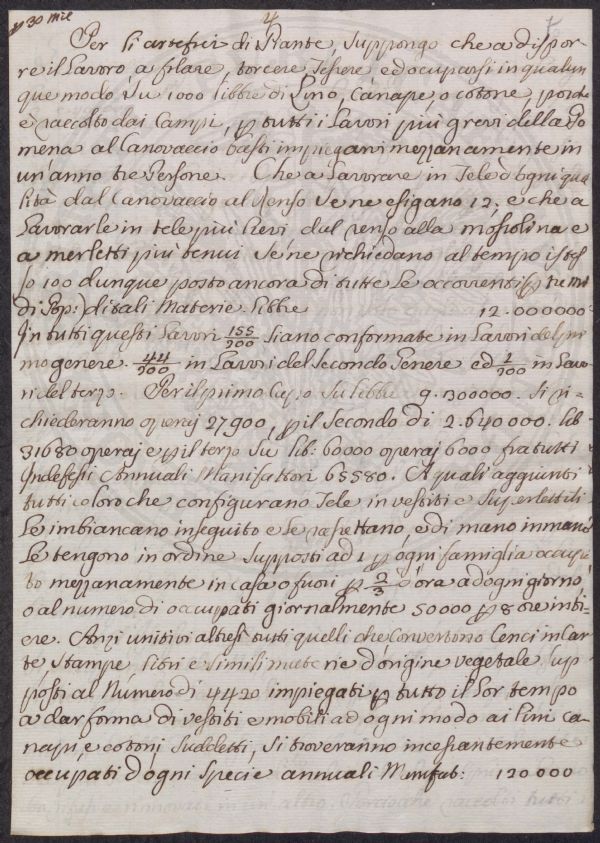 p 30 Mil
4
Per li artefici di Piante, Suppongo che a dispor-
re il Lavoro, a filare, torcere, Tessere, ed ocuparsi in qualun
que modo Su 1000 libbre di Lino, Canape, o cotone, poiche
è raccolto dai Campi, p tutti i Lavori più grevi della
mena al Canovaccio basti impiegarvi mezzanamente in
un'anno tre Persone. Che a Lavorare in Tele d'ogni qua
lità dal Canovaccio al Renso se ne esigano 12; e che a
Lavorarle in tele più lievi dal renso alla mossolina e
a merletti più tenui se ne richiedano al tempo istes
so 100 dunque posto ancora di tutte le occorrenti
di Pop:) di tali Materie libbre 12.000000
In tutti questi Lavori 155/200 siano conformate in Lavori del pri
mo genere 44/200 in Lavori del Secondo Genere ed 1/200 in Lavo
ri del terzo. Per il primo Capo Su libbre 9.300000. Si ri-
chiederanno operaj 27900, p il Secondo di 2.640000. lib
31680 operaj e p il terzo Su lib: 60000 operaj 6000 fra tutti
Indefessi Annuali Manifattori 65580. A quali aggiunti
tutti coloro che configurano Tele in vestiti e Superlettili
Le imbiancano in seguito e le rassettano, e di mano in mano
Le tengono in ordine Supposti ad 1 p ogni famiglia occupa
to mezzanamente in casa o fuori p 2/3 d'ora ad ogni giorno
o al numero di occupati giornalmente 50000 p 8 ore inti-
ere. Anzi unitivi altresì tutti quelli che convertono Cenci in Car
te Stampe, libri e simili materie d'origine vegetale Sup-
posti al Numero di 4420 impiegati p tutto il lor tempo
a dar forma di vestiti e mobili ad ogni modo ai lini ca-
napi, e cotonj Suddetti, si troveranno incessantemente
occupati d'ogni Specie annuali Manifat: 120000